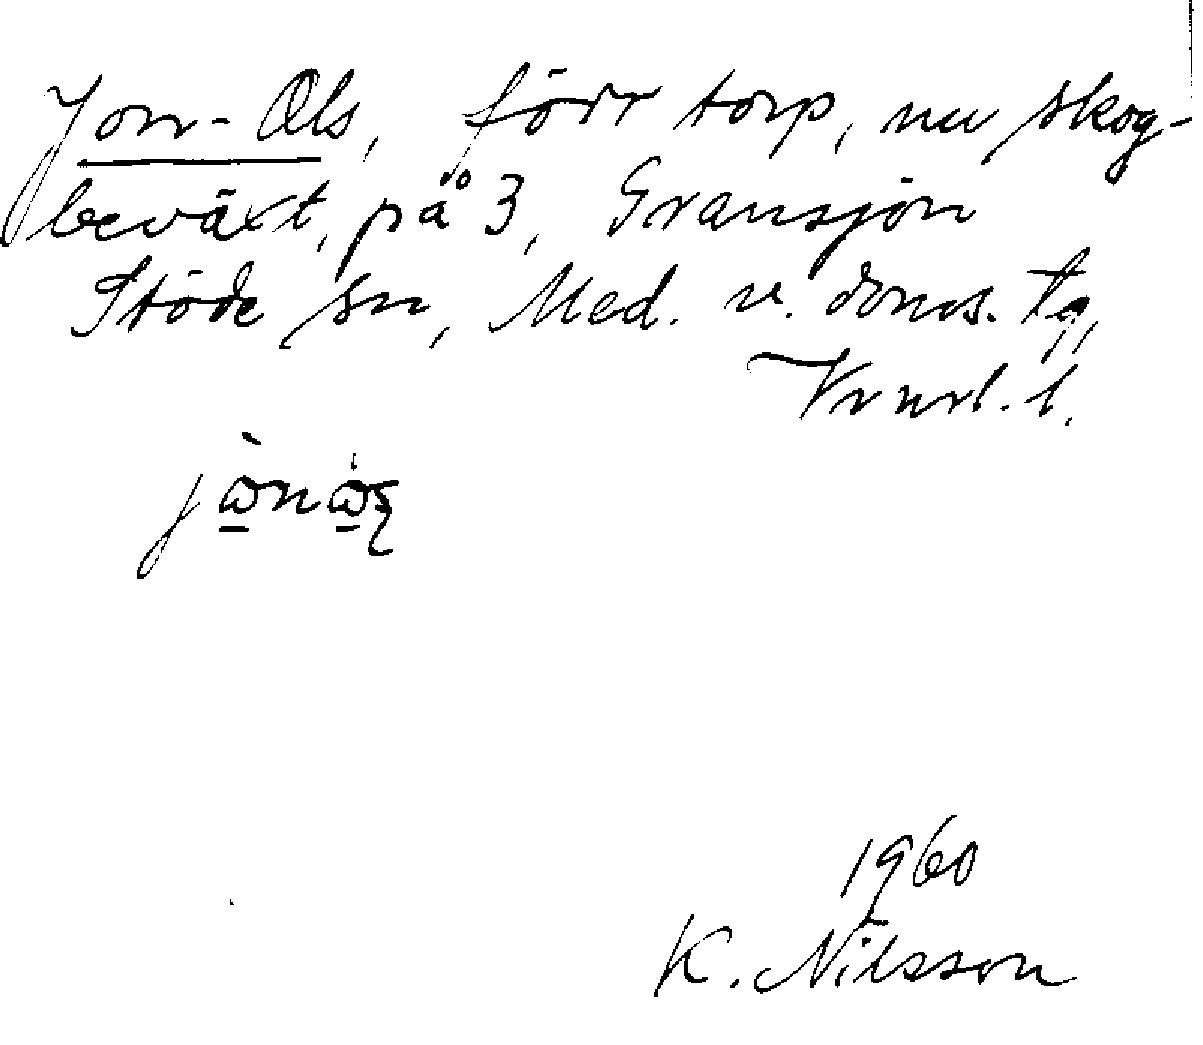 Jon-Ols, förr torp, nu skog-
beväxt, på 3, Gransjön
Stöde sn, Med. v. doms. tg,
l.
1960
K. Nilsson